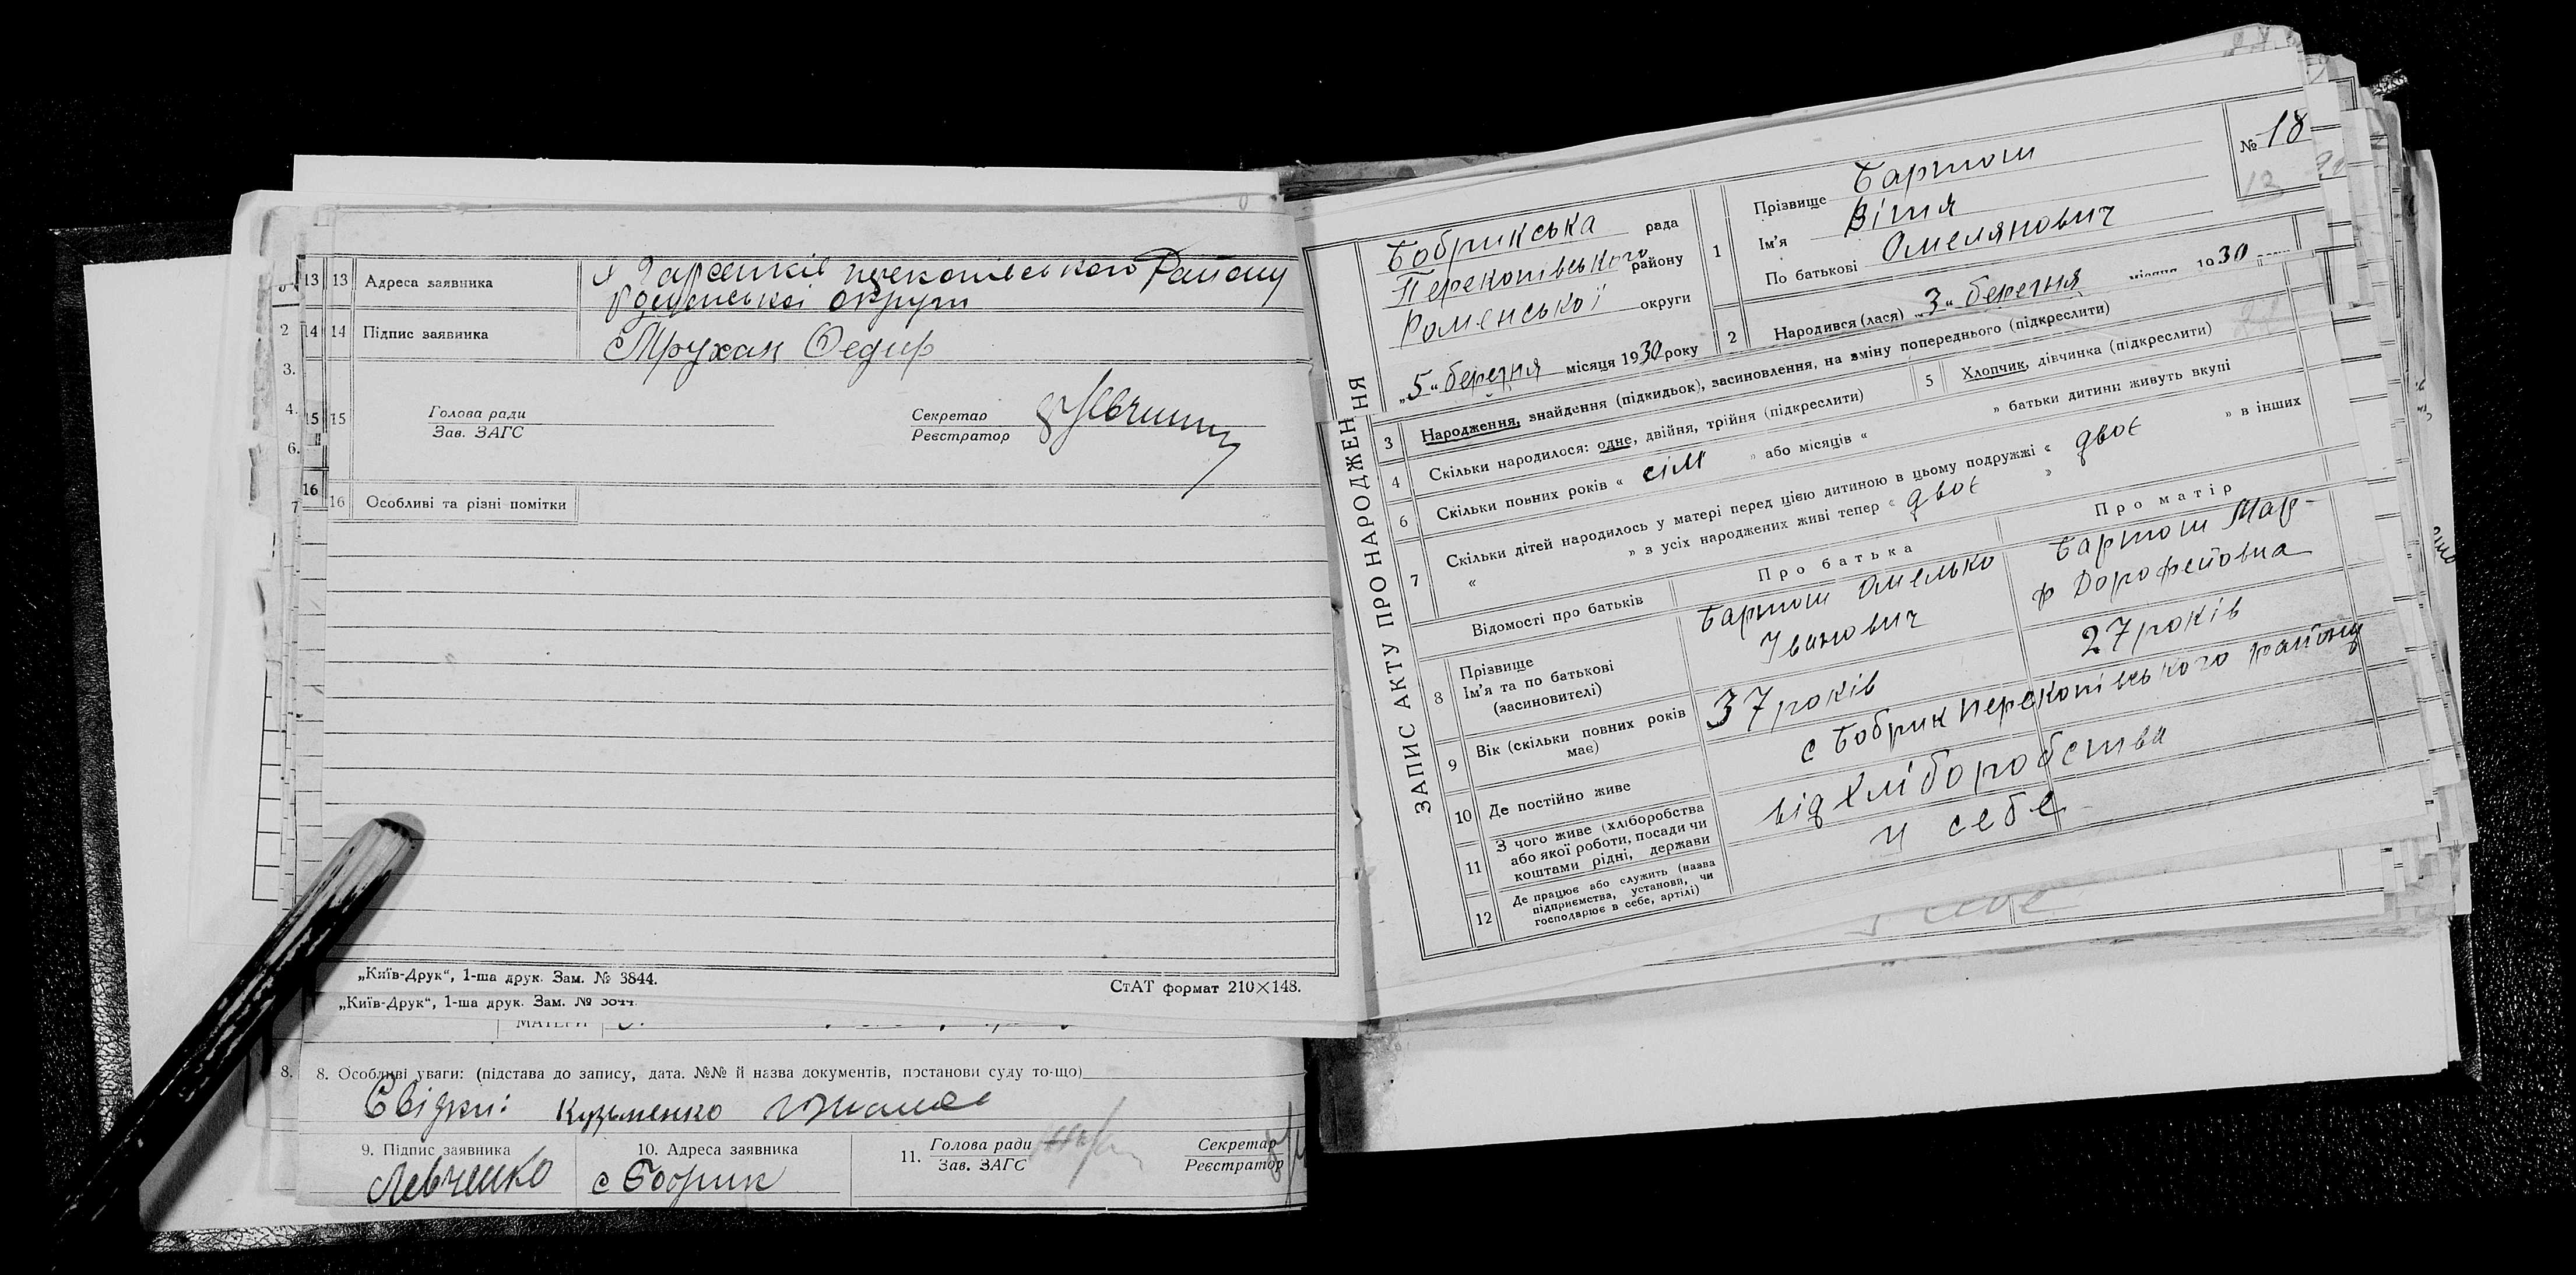 13 13 Адреса заявника
Району
округи
14 14 Підпис заявника
Федир
15 15 Голова ради
Зав. ЗАГС
Секретар
Реєстратор
16 16 Особливі та різні помітки
„Київ-Друк“, 1-ша друк. Зам. № 3844.
СтАТ формат 210×148.
„Київ-Друк“, 1-ша друк. Зам. №
МАТЕРИ
8. 8. Особливі уваги: (підстава до запису, дата. №№ й назва документів, постанови суду то-що)
Свідки: Кузьменко
9. Підпис заявника
Левченко
10. Адреса заявника
с Бобрик
11. Голова ради
Зав. ЗАГС
Секретар
Реєстратор
ЗАПИС АКТУ ПРО НАРОДЖЕННЯ
Бобрикська рада
Перекопівського району
Роменської округи
„5“ березня місяця 1930 року
№ 18
1 Прізвище Бартош
Ім'я Вітя
По батькові Омелянович
2 Народився (лася) „3“ березня місяця 1930
3 Народження, знайдення (підкидьок), засиновлення, на зміну попереднього (підкреслити)
4 Скільки народилося: одне, двійня, трійня (підкреслити)
5 Хлопчик, дівчинка (підкреслити)
6 Скільки повних років « сім » або місяців « » батьки дитини живуть вкупі
7 Скільки дітей народилось у матері перед цією дитиною в цьому подружжі « двоє » в інших
« » з усіх народжених живі тепер « двоє »
Відомості про батьків
Про батька
Про матір
8 Прізвище
Ім'я та по батькові
(засиновителі)
Бартош Омелько
Іванович
Бартош Мар-
ф Дорофейовна
9 Вік (скільки повних років має)
37 років
27 років
10 Де постійно живе
с Бобрик Перекопівського району
11 З чого живе (хліборобства
або якої роботи, посади чи
коштами рідні, держави
від хліборобства
12 Де працює або служить (назва
підприємства, установи, чи
господарює в себе, артілі)
у себе